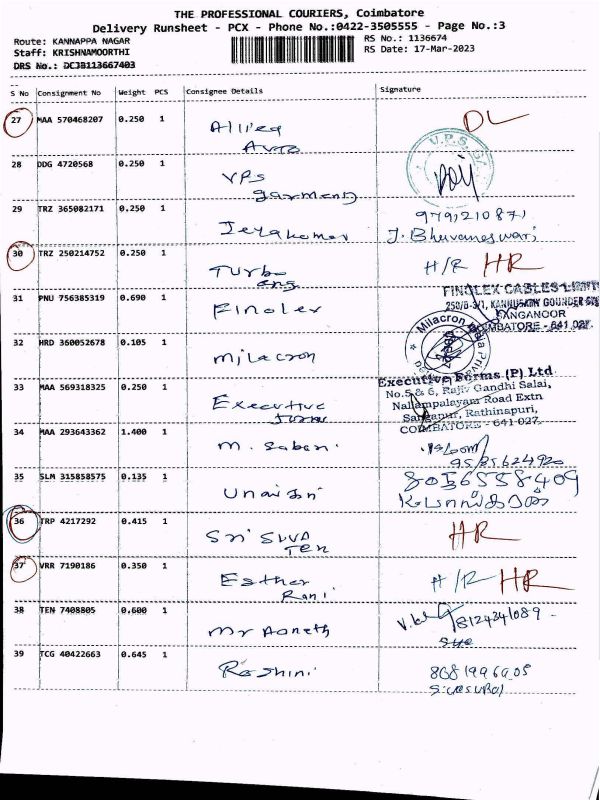 THE PROFESSIONAL COURIERS, Coimbatore
Delivery Runsheet - PCX - Phone No.:0422-3505555 - Page No.:3
Route: KANNAPPA NAGAR
RS No.: 1136674
Staff: KRISHNAMOORTHI
RS Date: 17-Mar-2023
DRS No.: DCJB113667403
S No Consignment No Weight PCS Consignee Details Signature
27 MAA 570468207 0.250 1 DL
Allied
Auto
28 DDG 4720568 0.250 1 V.P.S.
VPS
garments
29 TRZ 365082171 0.250 1
Jeyakumar J. Bhuvaneswari
30 TRZ 250214752 0.250 1 H/R HR
Turbo
eng
FINOLEX CABLES LIMIT
31 PNU 756385319 0.690 1
Finolex
GANGANOOR
COIMBATORE - 641 027.
32 HRD 360052678 0.105 1 Milacron
Milacron
33 MAA 569318325 0.250 1 Executive Forms (P) Ltd
No.5 & 6, Rajiv Gandhi Salai,
Executive
Nallampalayam Road Extn
Sanganur, Rathinapuri,
34 MAA 293643362 1.400 1 COIMBATORE - 641 027.
M. Sabari
9525624920
35 SLM 315858575 0.135 1 8056558409
36 TRP 4217292 0.415 1 HR
Sri Siva
Tex
37 VRR 7190186 0.350 1 H/R HR
Esther
Rani
38 TEN 7408805 0.600 1 8124341089
Mr
39 TCG 40422663 0.645 1
Roshini